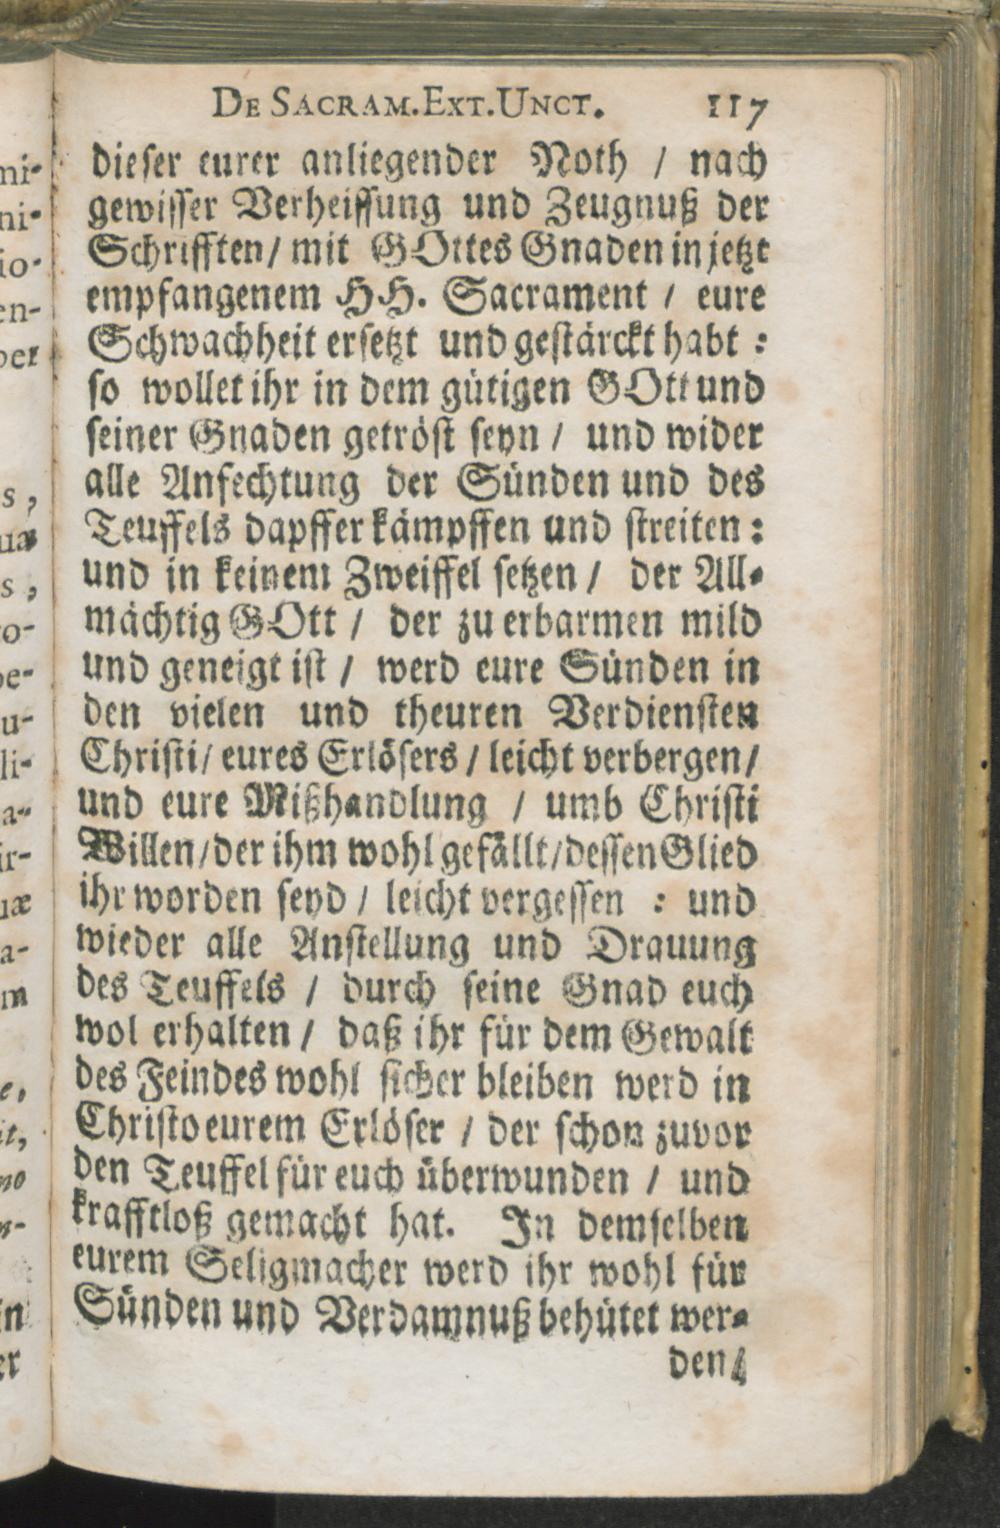 DE SACRAM. EXT. UNCT. 117
dieser eurer anliegender Noth / nach
gewisser Verheissung und Zeugnuß der
Schrifften / mit GOttes Gnaden in jetzt
empfangenem HH. Sacrament / eure
Schwachheit ersetzt und gestärckt habt :
so wollet ihr in dem gütigen GOtt und
seiner Gnaden getröst seyn / und wider
alle Anfechtung der Sünden und des
Teuffels dapffer kämpffen und streiten :
und in keinem Zweiffel setzen / der All-
mächtig GOtt / der zu erbarmen mild
und geneigt ist / werd eure Sünden in
den vielen und theuren Verdiensten
Christi / eures Erlösers / leicht verbergen /
und eure Mißhandlung / umb Christi
Willen / der ihm wohl gefällt / dessen Glied
ihr worden seyd / leicht vergessen : und
wieder alle Anstellung und Drauung
des Teuffels / durch seine Gnad euch
wol erhalten / daß ihr für dem Gewalt
des Feindes wohl sicher bleiben werd in
Christo eurem Erlöser / der schon zuvor
den Teuffel für euch überwunden / und
krafftloß gemacht hat. In demselben
eurem Seligmacher werd ihr wohl für
Sünden und Verdamnuß behütet wer-
den /